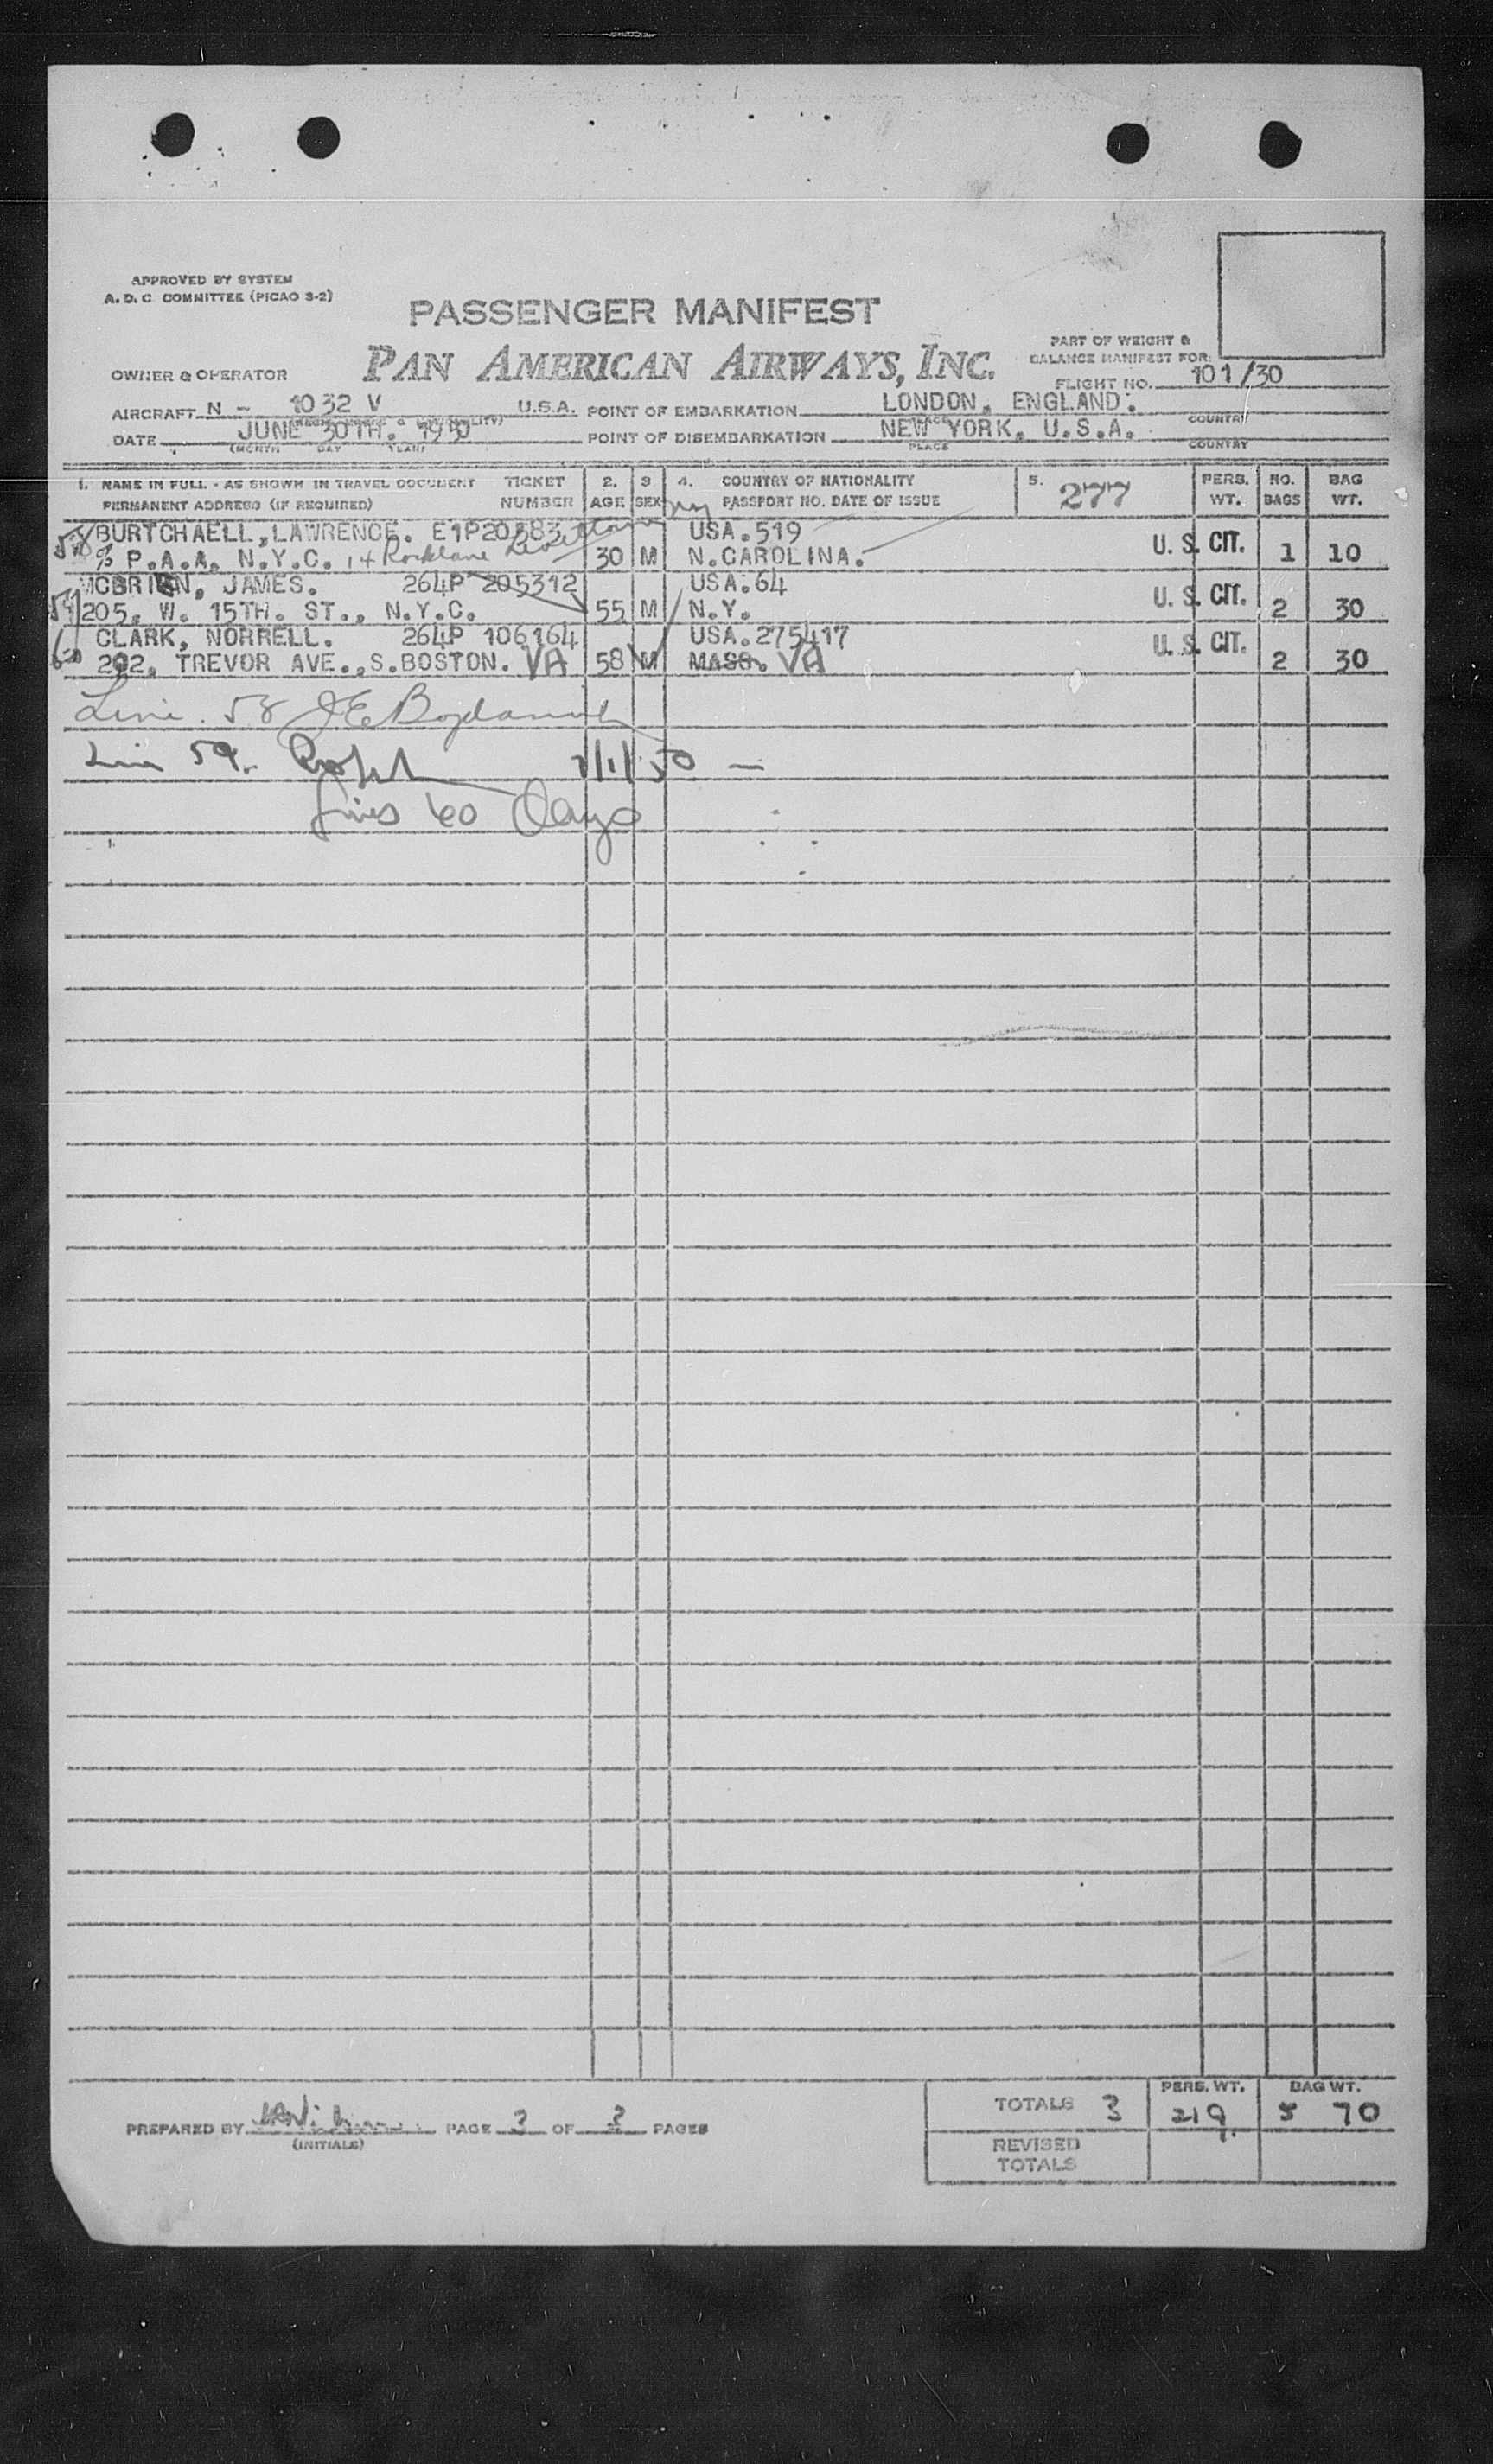 APPROVED BY SYSTEM
A. D. C. COMMITTEE (PICAO 3-2)
PASSENGER MANIFEST
PAN AMERICAN AIRWAYS, INC.
PART OF WEIGHT &
BALANCE MANIFEST FOR:
OWNER & OPERATOR
FLIGHT NO. 101/30
AIRCRAFT N - 1032 V U.S.A. POINT OF EMBARKATION LONDON, ENGLAND.
PLACE COUNTRY
DATE JUNE 30TH. 1950 POINT OF DISEMBARKATION NEW YORK, U.S.A.
(MONTH DAY YEAR) PLACE COUNTRY
1. NAME IN FULL - AS SHOWN IN TRAVEL DOCUMENT TICKET 2. 3 4. COUNTRY OF NATIONALITY 5. 277 PERS. NO. BAG
PERMANENT ADDRESS (IF REQUIRED) NUMBER AGE SEX PASSPORT NO. DATE OF ISSUE WT. BAGS WT.
58 BURTCHAELL, LAWRENCE. E1P20583 USA.519
% P.A.A. N.Y.C. 14 Rocklane 30 M N.CAROLINA. U. S. CIT. 1 10
59 MCBRIEN, JAMES. 264P 205312 USA.64
205, W. 15TH. ST., N.Y.C. 55 M N.Y. U. S. CIT. 2 30
60 CLARK, NORRELL. 264P 106164 USA.275417
202, TREVOR AVE., S.BOSTON. VA 58 M MASS. VA U. S. CIT. 2 30
Line 58 J E
Line 59. 7/1/50 —
Lines 60
PERS. WT. BAG WT.
TOTALS 3 219 5 70
PREPARED BY PAGE 3 OF 3 PAGES
(INITIALS)
REVISED
TOTALS